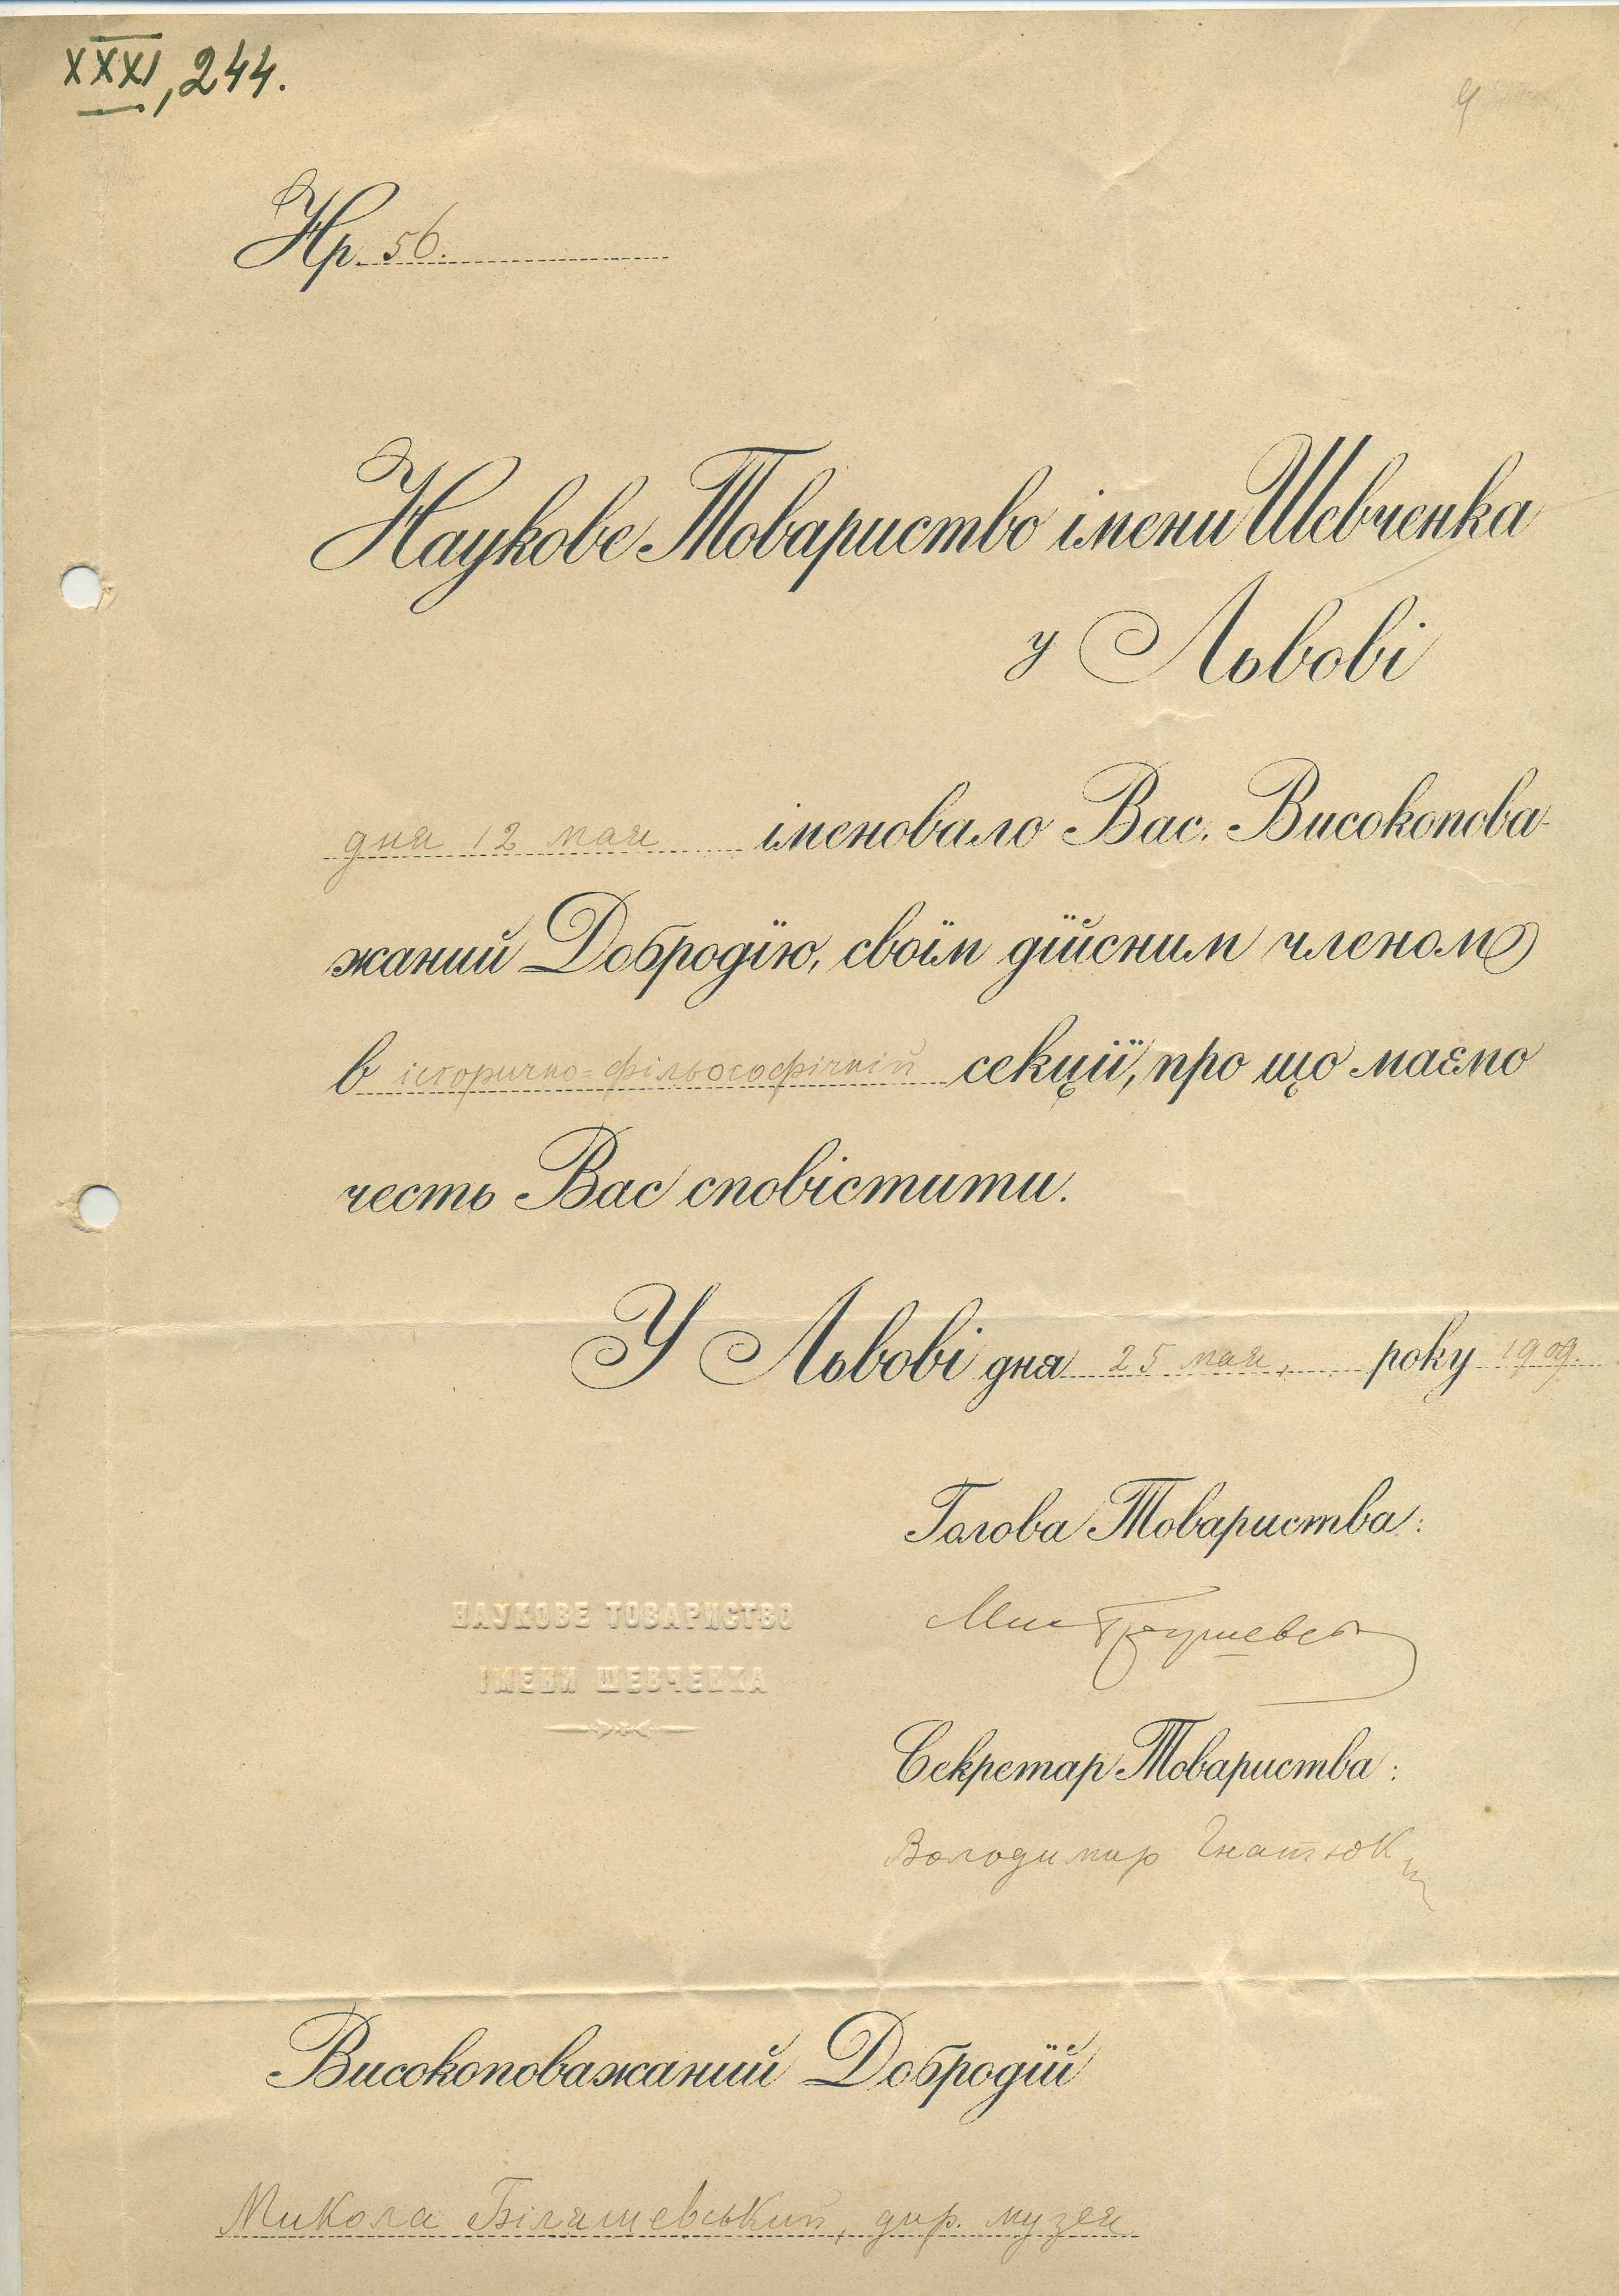 XXXI, 244.
9
Нр. 56.
Наукове Товариство імени Шевченка
у Львові
дня 12 мая іменовало Вас, Високопова-
жаний Добродїю, своїм дїйсним членом
в історично-фільософічній секциї, про що маємо
честь Вас сповістити.
У Львові дня 25 мая, року 1909.
Голова Товариства:
НАУКОВЕ ТОВАРИСТВО
ІМЕНИ ШЕВЧЕНКА
Мих Грушевсь
Секретар Товариства:
Володимир Гнатюк
Високоповажаний Добродїй
Микола Біляшевський, дир. музея